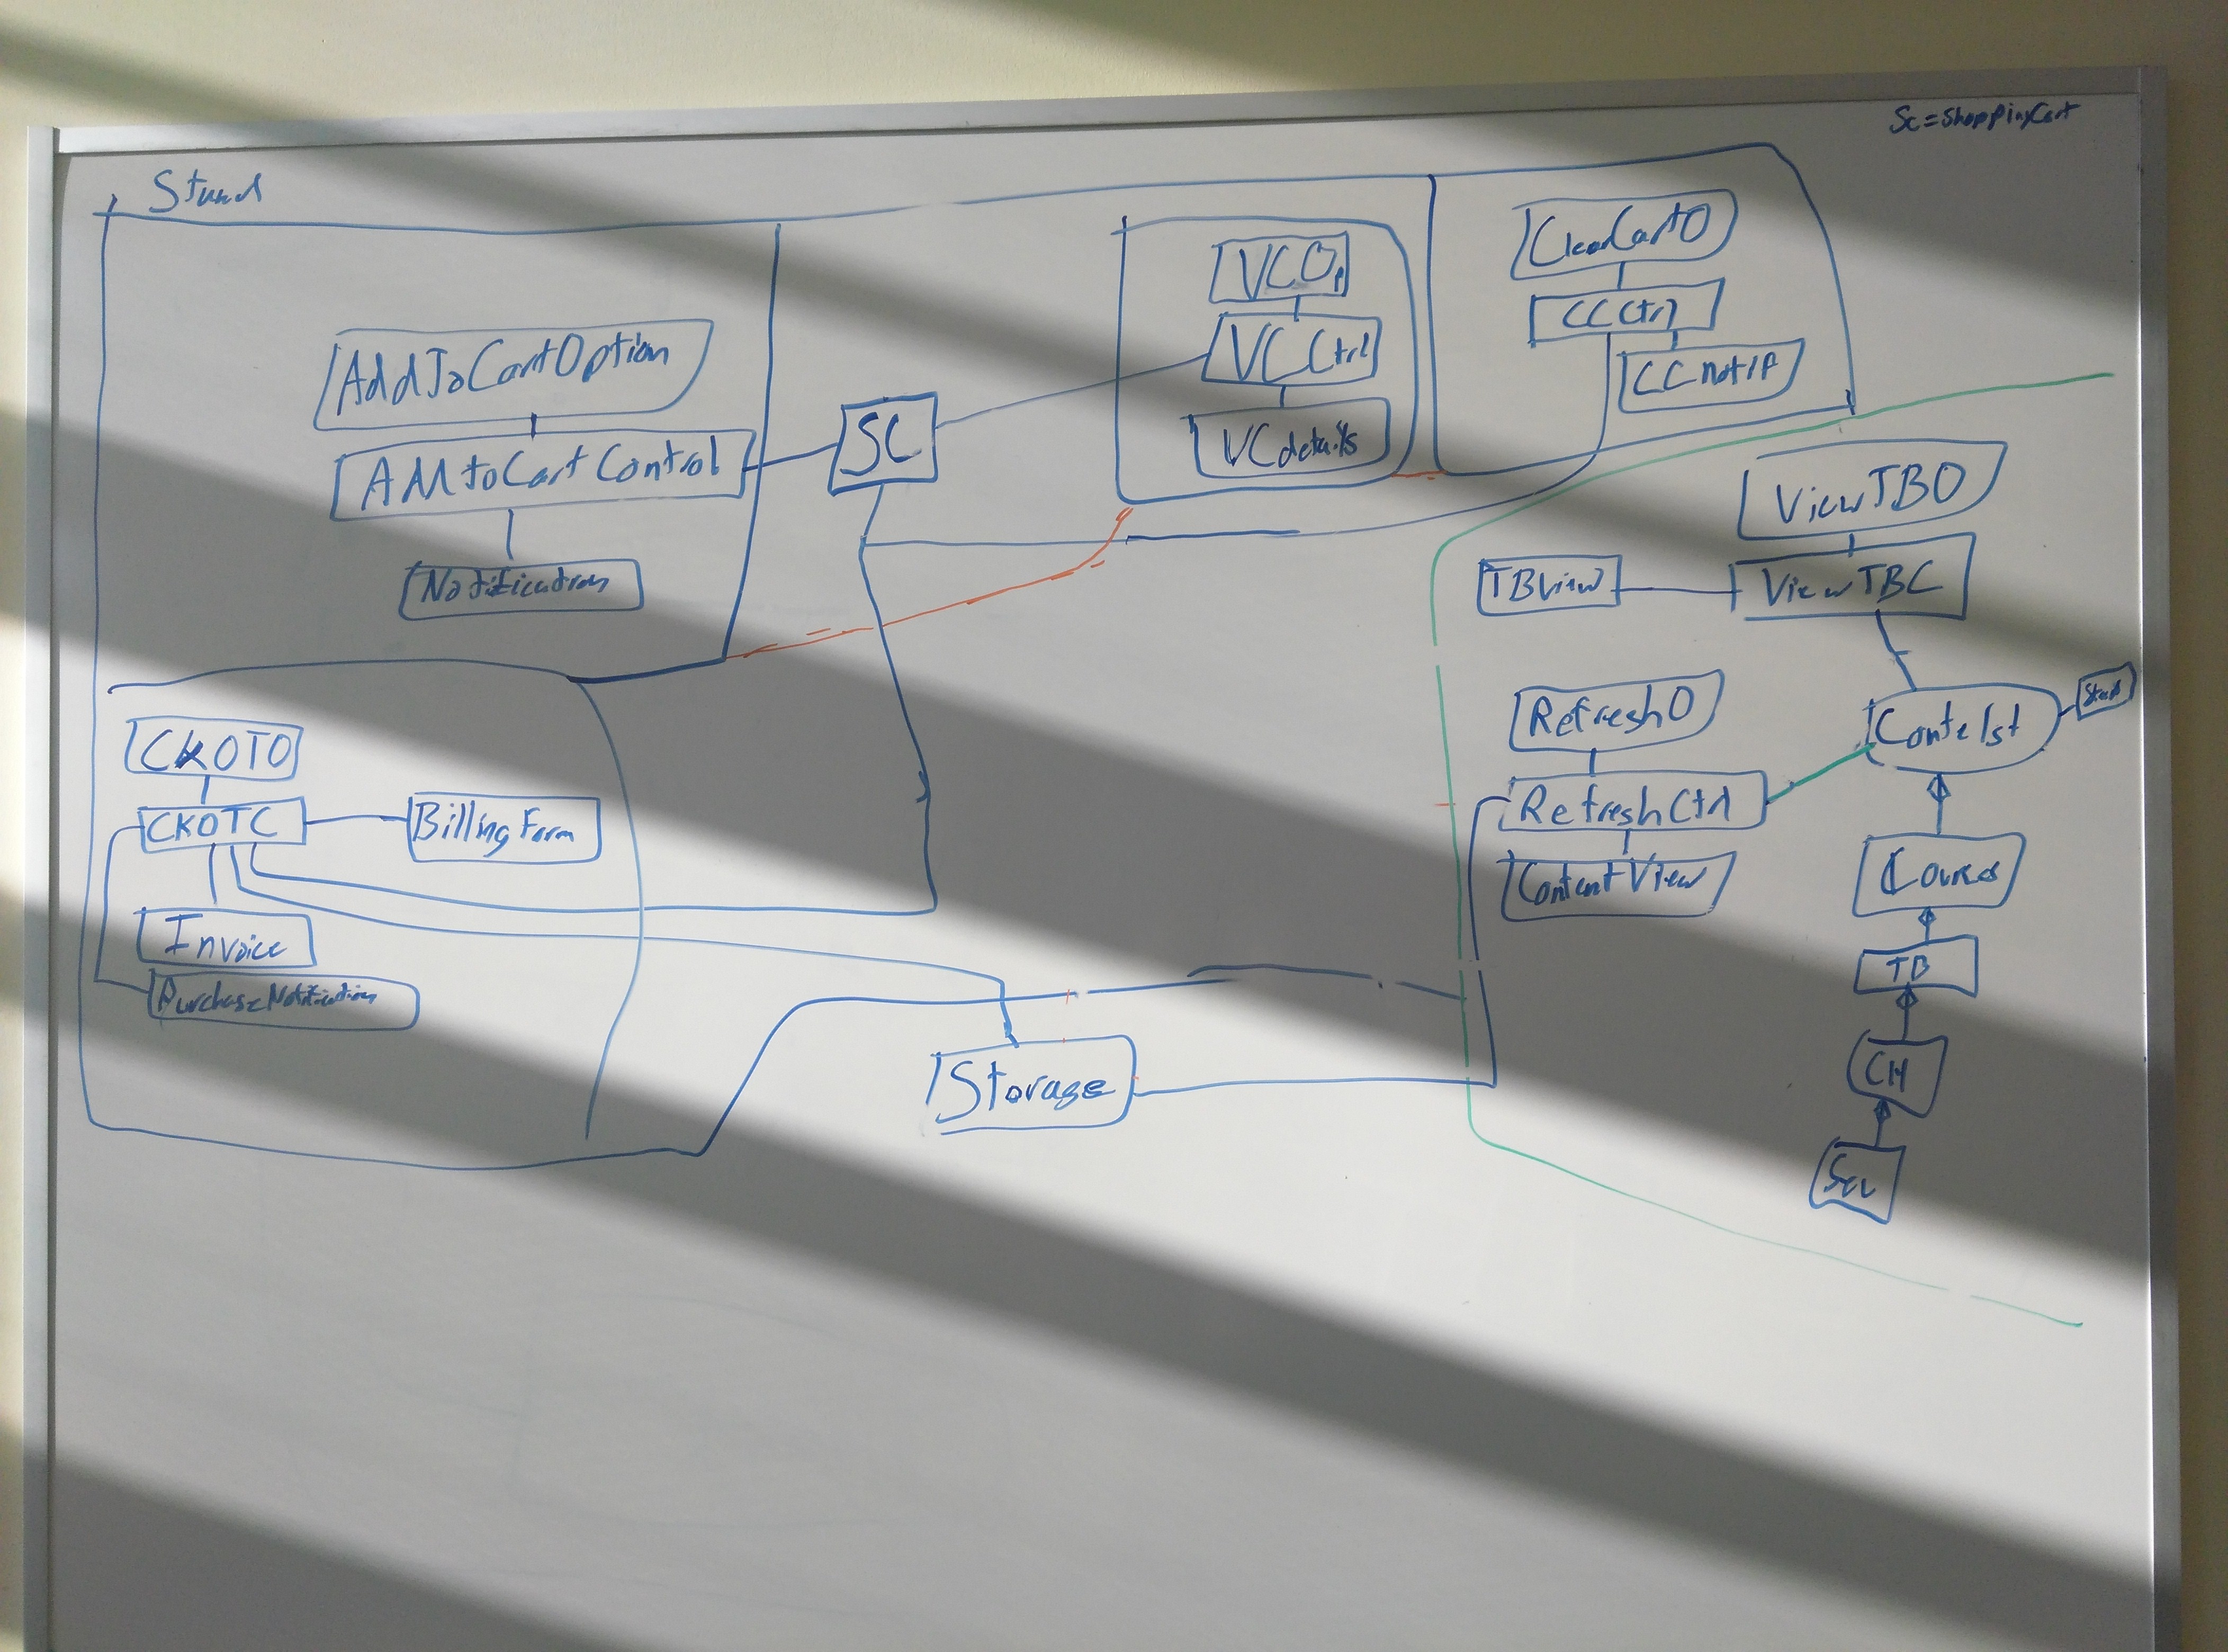 Sc=ShoppingCart
AddToCartOption
AddtoCartControl
Notification
SC
VCOp
VCCtrl
VCdetails
ClearCartO
CCCtrl
CCNotif
ViewTBO
ViewTBC
TBView
RefreshO
RefreshCtrl
ContentView
Courses
TB
CH
CKOTO
CKOTC
BillingForm
Invoice
PurchaseNotification
Storage